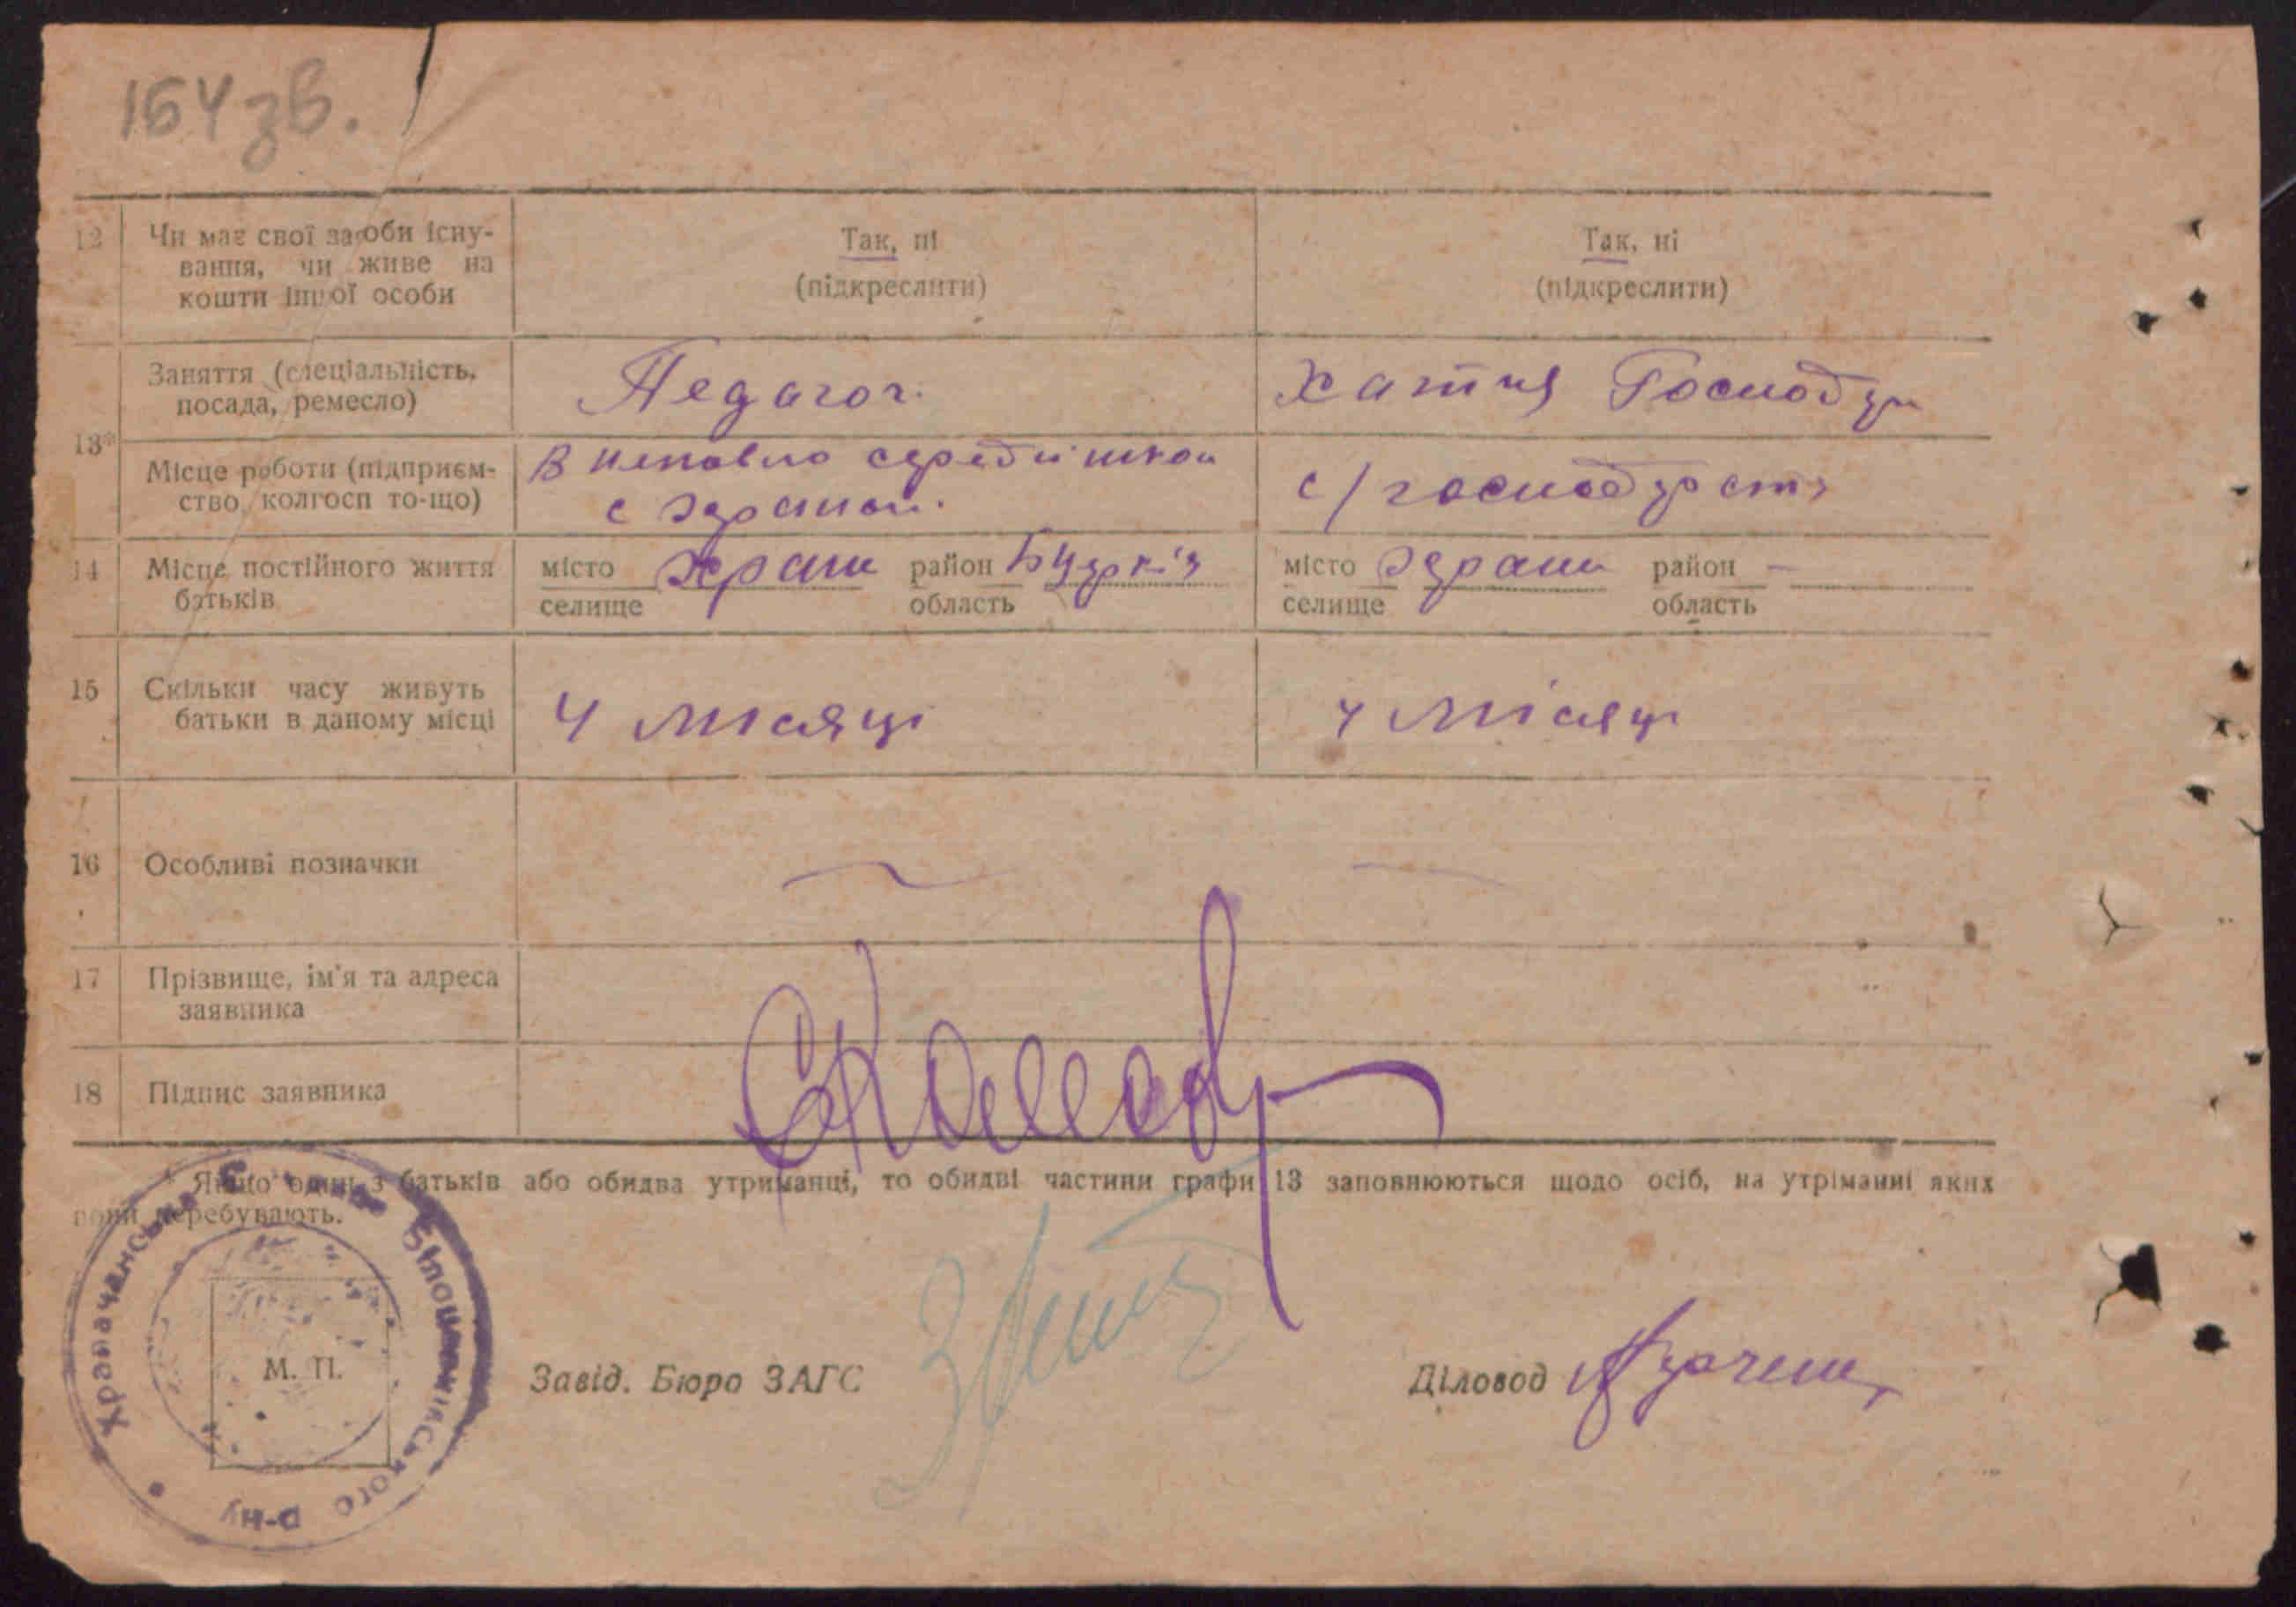 164 зв.
12 Чи має свої засоби існу- Так, ні Так, ні
вання, чи живе на (підкреслити) (підкреслити)
кошти іншої особи
Заняття (спеціальність, Педагог. Хатня Господар
посада, ремесло)
13*
Місце роботи (підприєм- В неповно середній школі с/господарств
ство, колгосп то-що) с
14 Місце постійного життя місто район місто район –
батьків селище область селище область
15 Скільки часу живуть 4 місяці 4 місяці
батьки в даному місці
16 Особливі позначки
17 Прізвище, ім'я та адреса
заявника
18 Підпис заявника
* Якщо один з батьків або обидва утриманці, то обидві частини графи 13 заповнюються щодо осіб, на утріманні яких
вони перебувають.
Храпачанська Білоцерківського р-ну
М. П.
Завід. Бюро ЗАГС Діловод